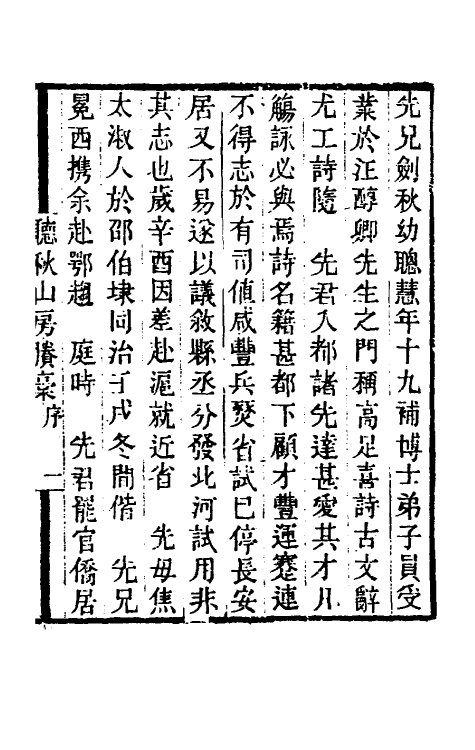 先兄劍秋幼聰慧年十九補博士弟子員受
業於汪醇卿先生之門稱高足喜詩古文辭
尤工詩隨　先君入都諸先達甚愛其才凡
觴詠必與焉詩名籍甚都下顧才豐運蹇連
不得志於有司値咸豐兵燹省試已停長安
居又不易遂以議敘縣丞分發北河試用非
其志也歲辛酉因差赴滬就近省　先母焦
太淑人於邵伯埭同治壬戌冬間偕　先兄
冕西携余赴鄂趨　庭時　先君罷官僑居
聽秋山房賸稾序　一